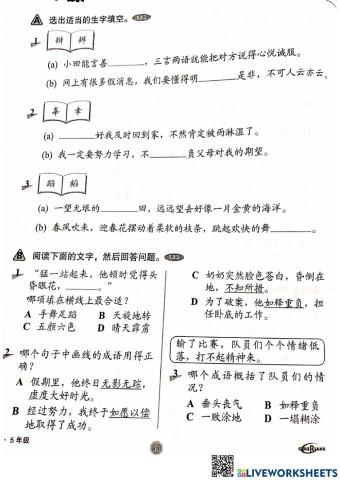 A 选出适当的生字填空。
1 辩 辨
(a) 小田能言善________，三言两语就能把对方说得心悦诚服。
(b) 网上有很多假消息，我们要懂得明________是非，不可人云亦云。
2 辜 幸
(a) ________好我及时回到家，不然肯定被雨淋湿了。
(b) 我一定要努力学习，不________负父母对我的期望。
3 蹈 稻
(a) 一望无垠的________田，远远望去好像一片金黄的海洋。
(b) 春风吹来，迎春花摆动着柔软的枝条，跳起欢快的舞________。
B 阅读下面的文字，然后回答问题。
1 “猛一站起来，他顿时觉得头
昏眼花，________。”
哪项填在横线上最合适？
A 手舞足蹈 B 天旋地转
C 五颜六色 D 晴天霹雳
2 哪个句子中画线的成语用得正
确？
A 假期里，他终日无影无踪，
虚度大好时光。
B 经过努力，我终于如愿以偿
地取得了成功。
C 奶奶突然脸色苍白，昏倒在
地，不知所措。
D 为了破案，他如释重负，担
任卧底的工作。
输了比赛，队员们个个情绪低
落，打不起精神来。
3 哪个成语概括了队员们的情
况？
A 垂头丧气 B 如释重负
C 一败涂地 D 一塌糊涂
5 年级
LIVEWORKSHEETS